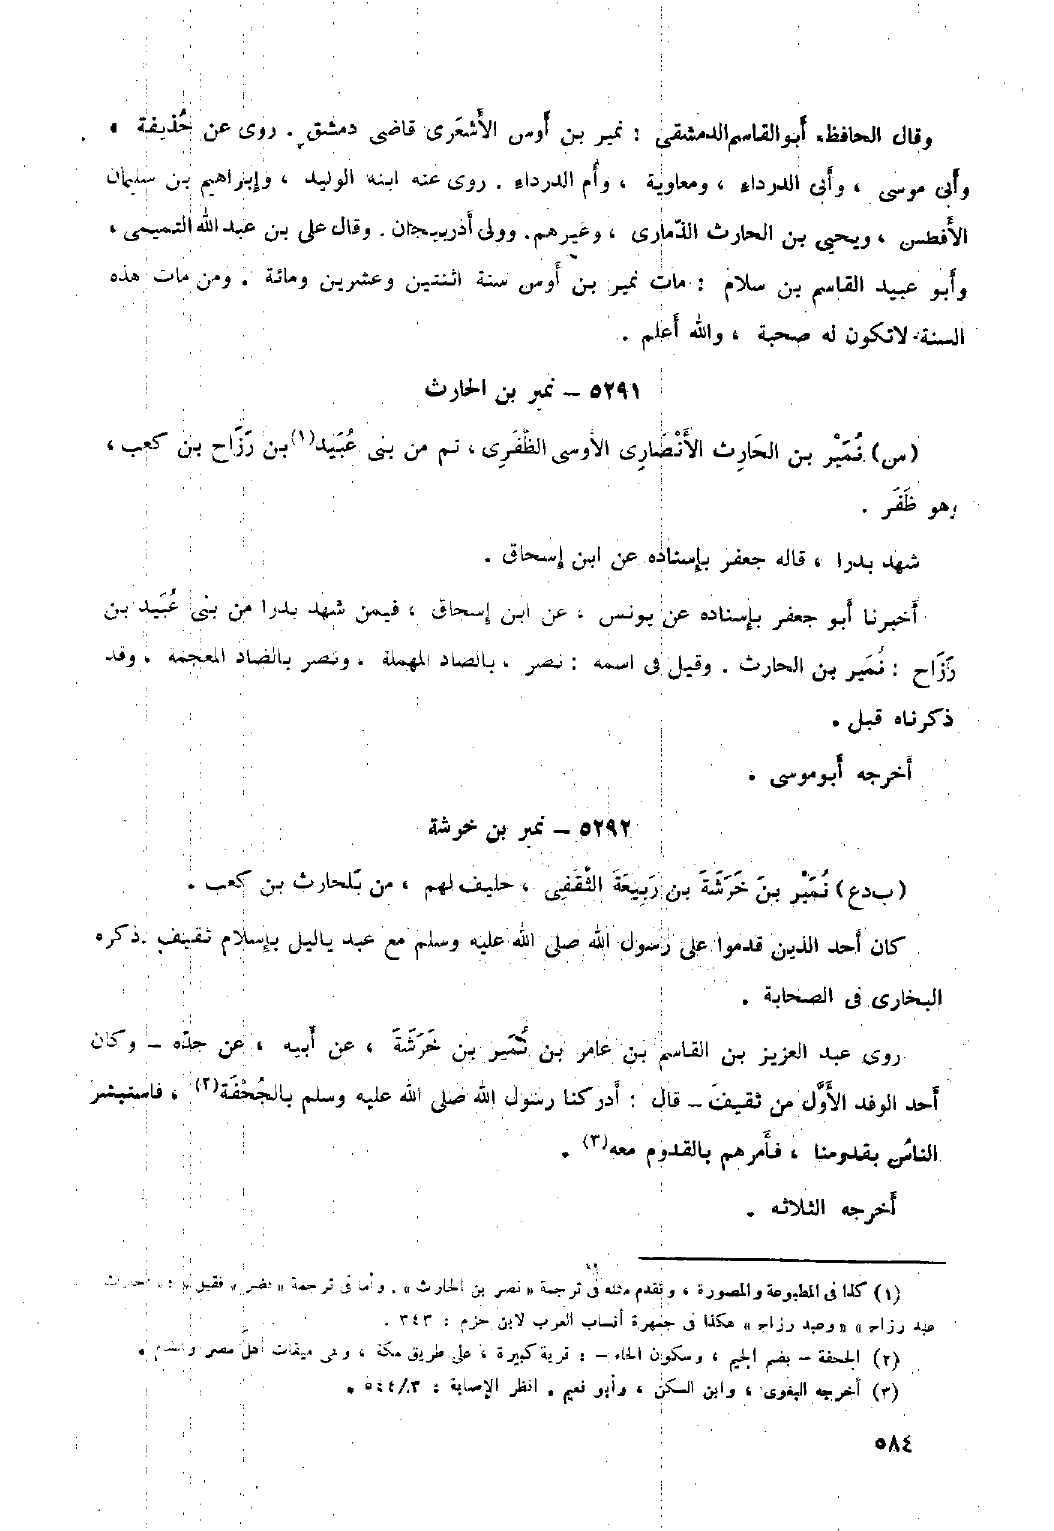 وقال الحافظ أبو القاسم الدمشقى : نمير بن أوس الأشعَرى قاضى دمشق . روى عن حُذيفة ،
وأبى موسى ، وأبى الدرداء ، ومعاوية ، وأُم الدرداء . روى عنه ابنه الوليد ، وإبراهيم بن سليمان
الأَفطس ، ويحيى بن الحارث الذّمارى ، وغيرهم . وولى أذربيجان . وقال على بن عبد الله التميمى ،
وأَبو عبيد القاسم بن سلام : مات نمير بن أَوس سنة اثنتين وعشرين ومائة . ومن مات هذه
السنة لا تكون له صحبة ، والله أَعلم .
٥٢٩١ – نمير بن الحارث
(س) نُمَيْر بن الحَارِث الأَنْصَارِى الأَوسى الظَّفَرِى ، ثم من بنى عُبَيد(١) بن رَزَاح بن كعب ،
وهو ظَفَر .
شهد بدرا ، قاله جعفر بإسناده عن ابن إسحاق .
أَخبرنا أَبو جعفر بإسناده عن يونس ، عن ابن إسحاق ، فيمن شهد بدرا من بنى عُبَيد بن
رَزَاح : نُمَير بن الحارث . وقيل فى اسمه : نصر ، بالصاد المهملة ، ونضر بالضاد المعجمة ، وقد
ذكرناه قبل .
أَخرجه أَبو موسى .
٥٢٩٢ – نمير بن خرشة
(ب د ع) نُمَيْر بنَ خَرَشَةَ بن رَبِيعَةَ الثَّقَفِى ، حليف لهم ، من بَلحارث بن كعب .
كان أَحد الذين قدموا على رسول الله صلى الله عليه وسلم مع عبد ياليل بإسلام ثقيف . ذكره
البخارى فى الصحابة .
روى عبد العزيز بن القاسم بن عامر بن نُمَير بن خَرَشَةَ ، عن أَبيه ، عن جدّه – وكان
أَحد الوفد الأَوَّل من ثقيف – قال : أَدركنا رسول الله صلى الله عليه وسلم بالجُحْفَة(٢) ، فاستبشر
الناسُ بقدومنا ، فأَمرهم بالقدوم معه(٣) .
أَخرجه الثلاثه .
(١) كذا فى المطبوعة والمصورة ، وتقدم مثله فى ترجمة « نصر بن الحارث » . وأما فى ترجمة « نضر » فقيل : الحارث
عبد رزاح » « وعبد رزاح » هكذا فى جمهرة أنساب العرب لابن حزم : ٣٤٣ .
(٢) الجحفة – بضم الجيم ، وسكون الحاء – : قرية كبيرة ، على طريق مكة ، وهى ميقات أهل مصر والشام .
(٣) أخرجه البغوى ، وابن السكن ، وأبو نعيم . انظر الإصابة : ٥٤٤/٣ .
٥٨٤